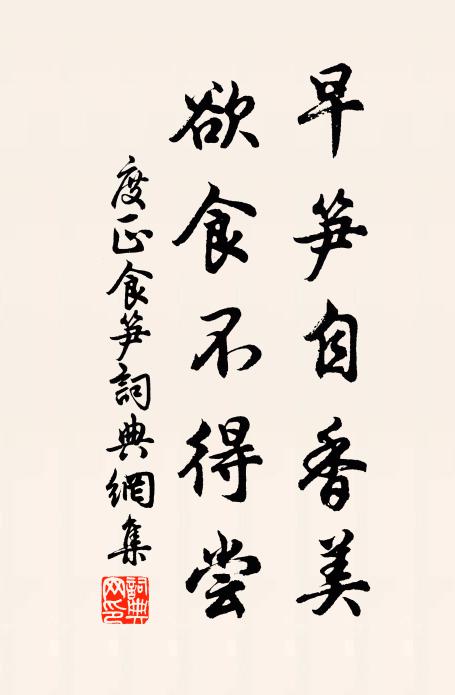 早笋自香美
欲食不得尝
度正食笋詞典網集
詞典网印